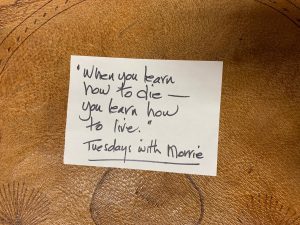 "When you learn
how to die —
you learn how
to live."
Tuesdays with Morrie